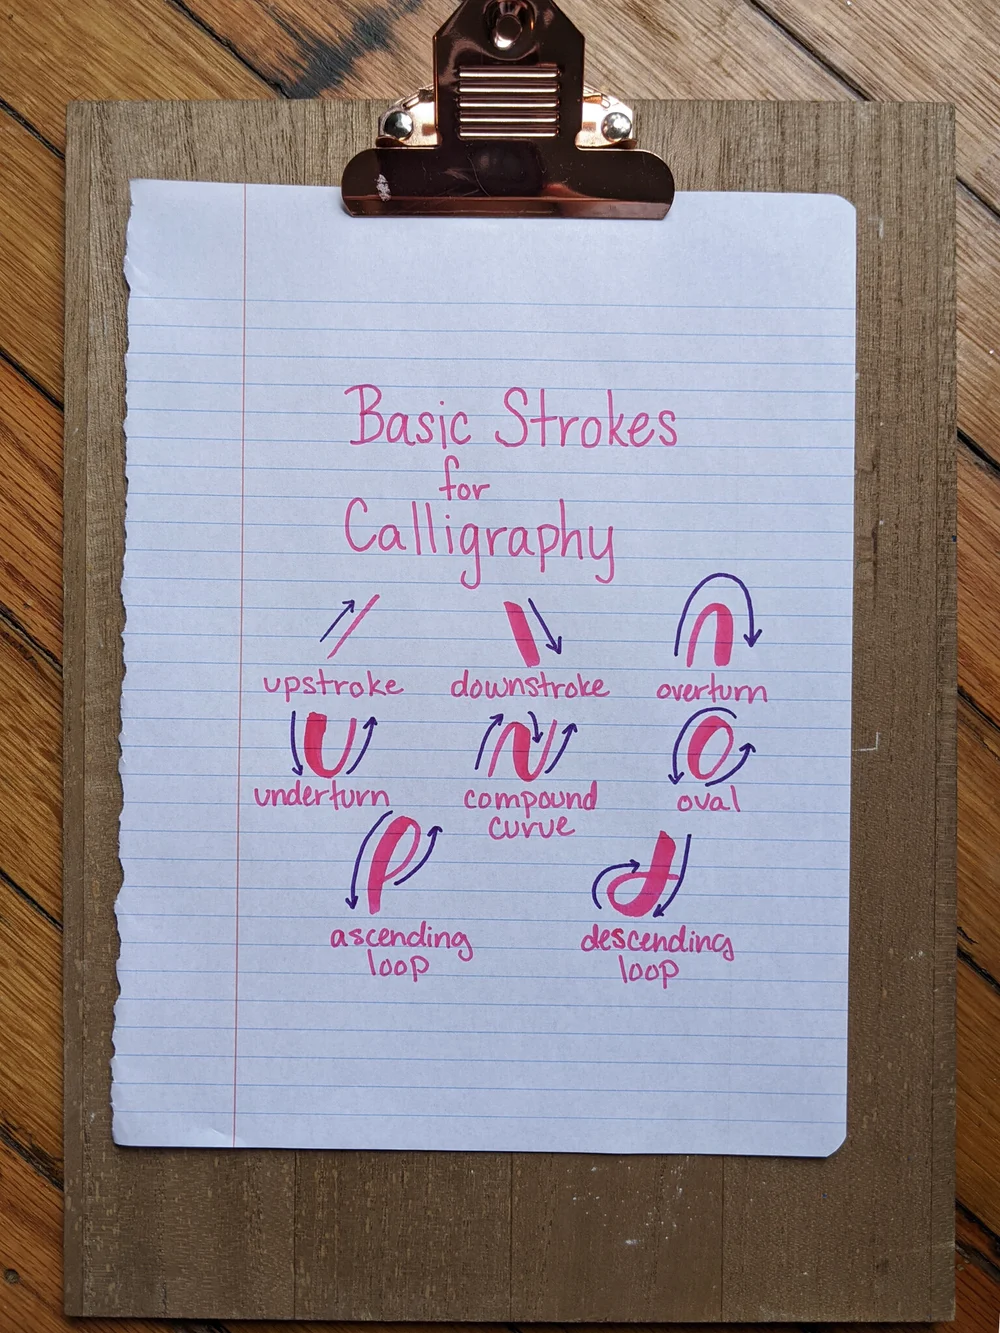 Basic Strokes
for
Calligraphy
upstroke downstroke overturn
underturn compound curve oval
ascending loop descending loop